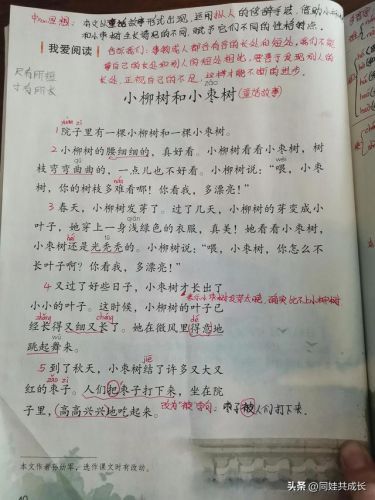 中心思想：本文以童话故事形式出现，运用拟人的修辞手法，借助小柳树
和小枣树生长特点的不同，赋予它们不同的性格特点。
我爱阅读
告诉我们：事物或人都会有各的长处和短处，我们不能
拿自己的长处和别人的短处相比，要善于发现别人的
长处，正视自己的不足，这样才能不断的进步。
尺有所短
寸有所长
zǎo
小柳树和小枣树(童话故事)
yuàn zi
1院子里有一棵小柳树和一棵小枣树。
2小柳树的腰细细的，真好看。小柳树看看小枣树，树
wèi
枝弯弯曲曲的，一点儿也不好看。小柳树说：“喂，小枣
树，你的树枝多难看哪！你看我，多漂亮！”
3春天，小柳树发芽了。过了几天，小柳树的芽变成小
qiǎn
叶子，她穿上一身浅绿色的衣服，真美！她看看小枣树，
小枣树还是光秃秃的。小柳树说：“喂，小枣树，你怎么不
长叶子啊？你看我，多漂亮！”
4又过了好些日子，小枣树才长出了
小小的叶子。这时候，小柳树的叶子已
经长得又细又长了。她在微风里得意地
wǔ
跳起舞来。
jiē
5到了秋天，小枣树结了许多又大又
zǎo zi
红的枣子。人们把枣子打下来，坐在院
子里，高高兴兴地吃起来。
改为“被”字句：枣子被人们打下来.
本文作者孙幼军，选作课文时有改动。
头条 @同娃共成长